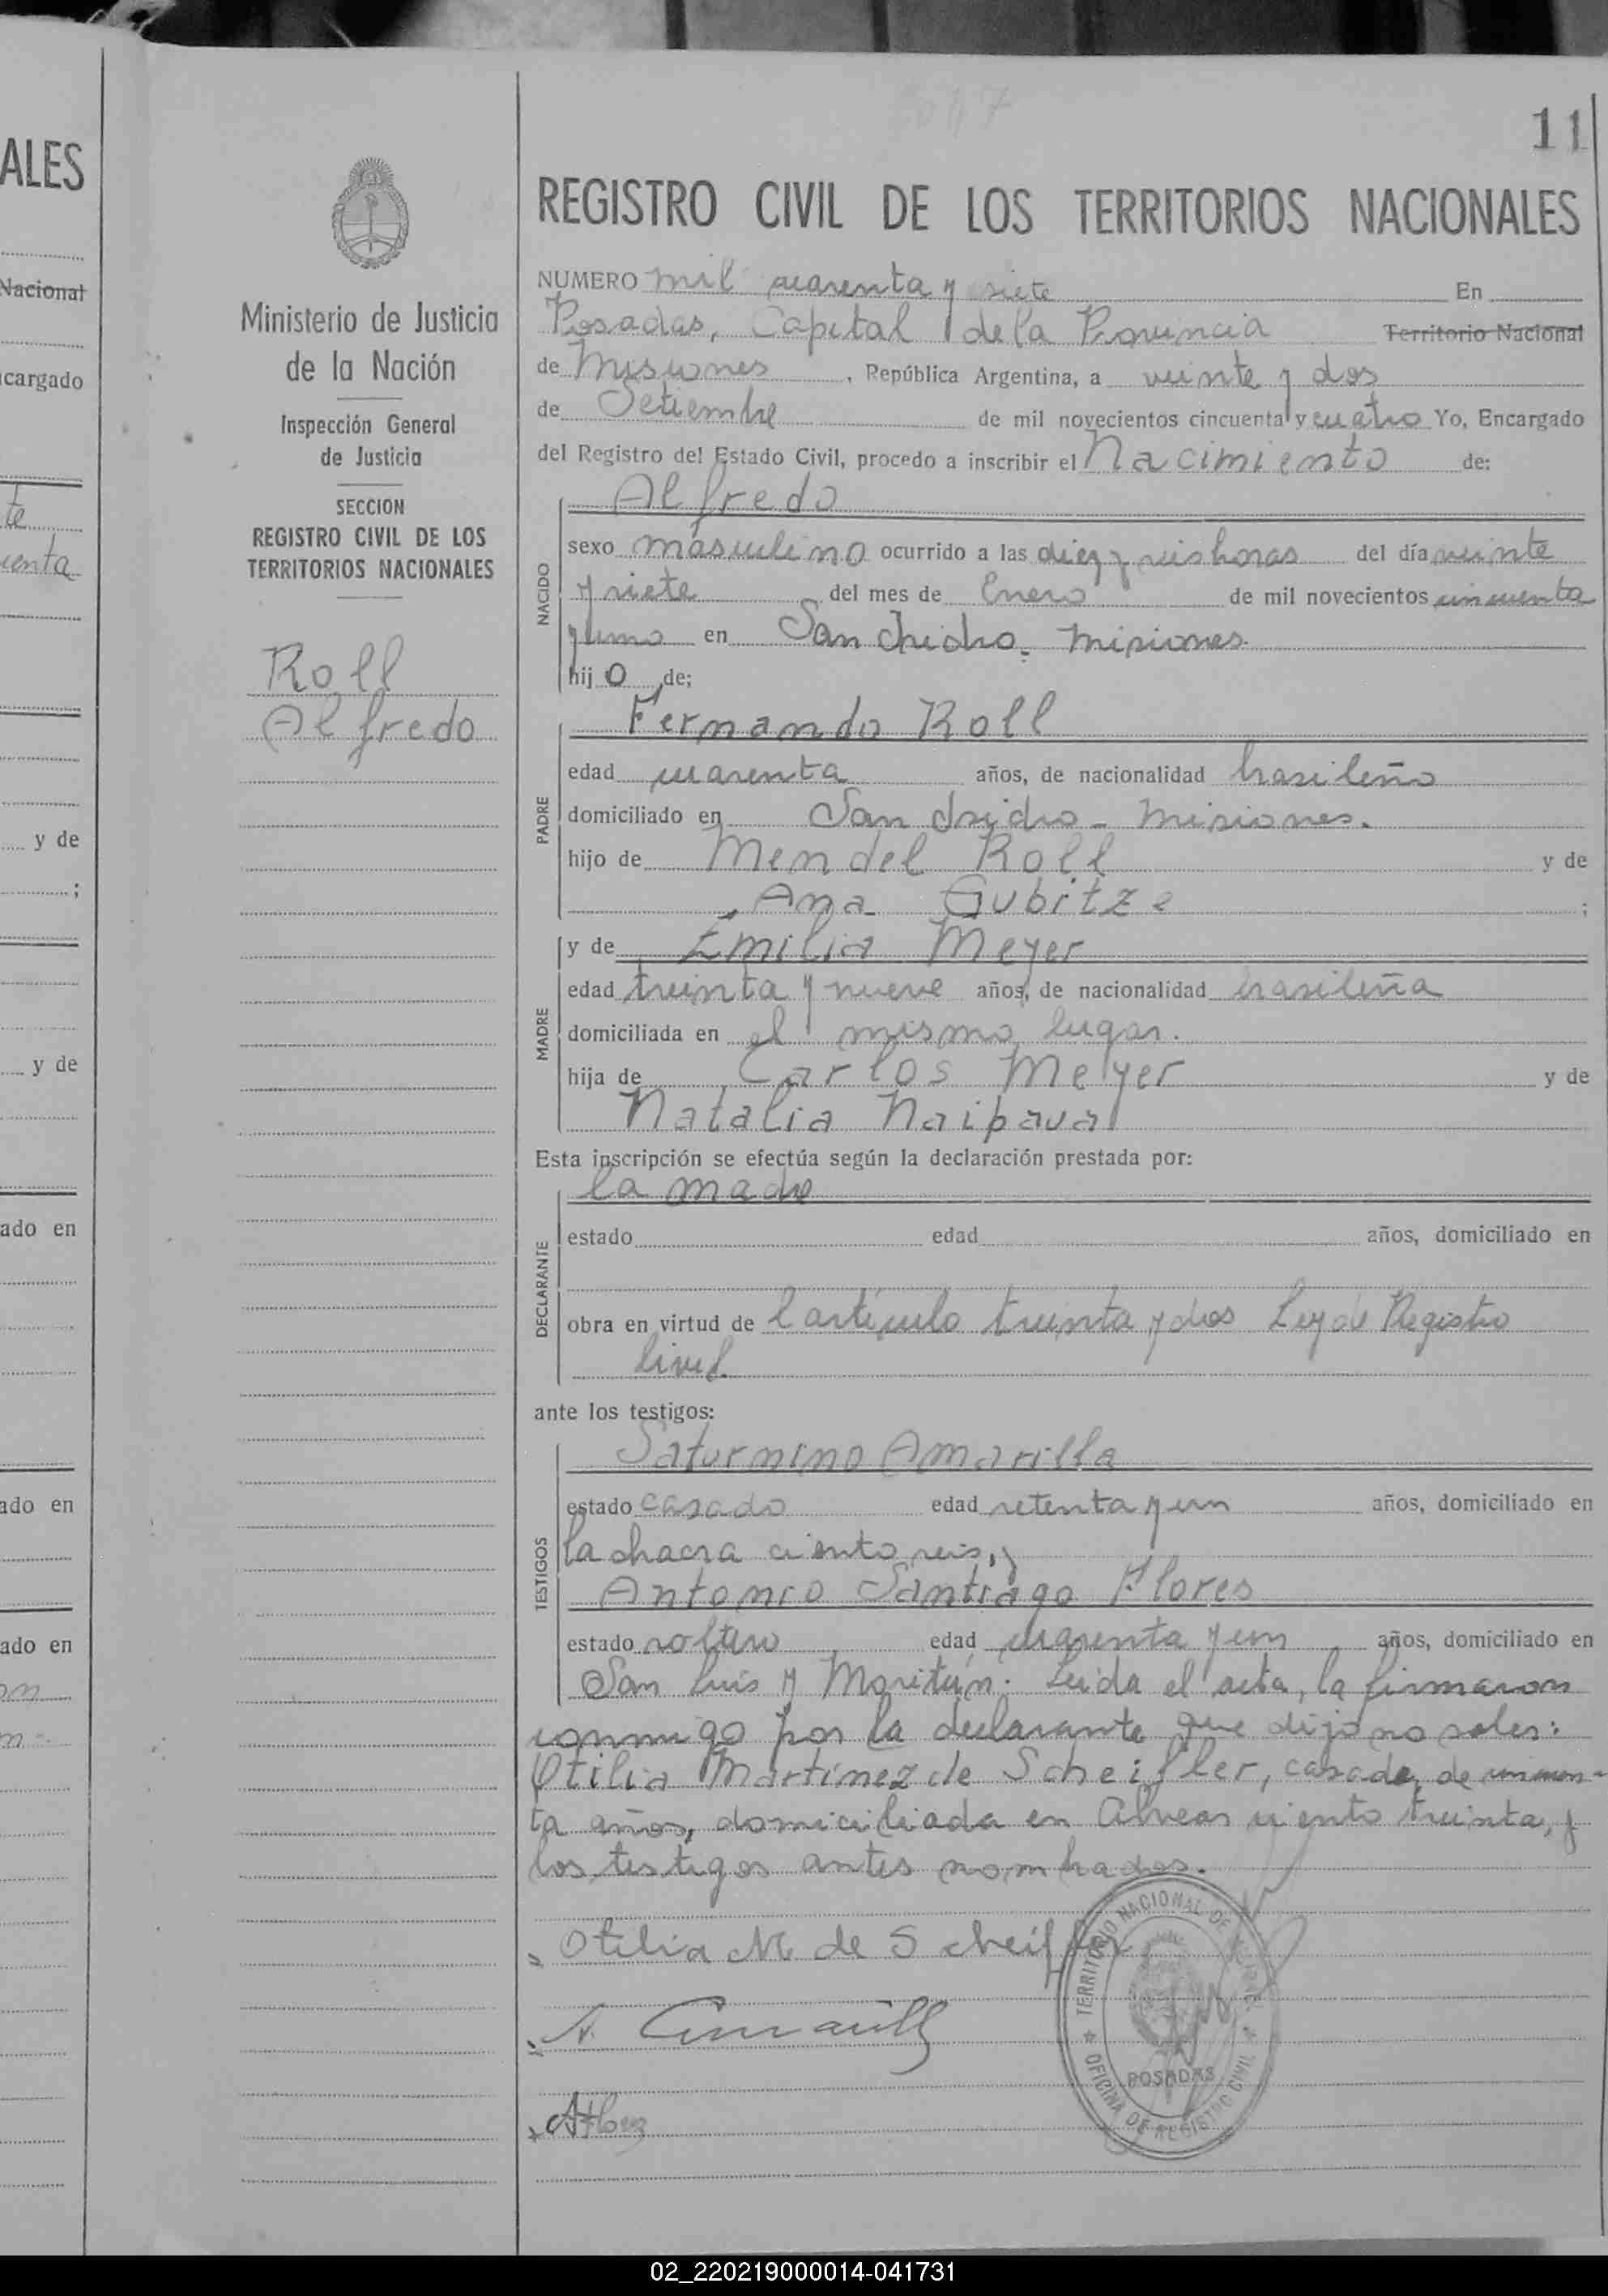 ALES
Nacional
cargado
te
uenta
y de
;
y de
ado en
ado en
ado en
Ministerio de Justicia
de la Nación
Inspección General
de Justicia
SECCION
REGISTRO CIVIL DE LOS
TERRITORIOS NACIONALES
Roll
Alfredo
11
REGISTRO CIVIL DE LOS TERRITORIOS NACIONALES
NUMERO mil cuarenta y siete En
Posadas, Capital de la Provincia Territorio Nacional
de Misiones, República Argentina, a veinte y dos
de Setiembre de mil novecientos cincuenta y cuatro Yo, Encargado
del Registro del Estado Civil, procedo a inscribir el Nacimiento de:
NACIDO
Alfredo
sexo masculino ocurrido a las diez y seis horas del día veinte
y siete del mes de Enero de mil novecientos cincuenta
y uno en San Isidro. Misiones
hijo de;
PADRE
Fernando Roll
edad cuarenta años, de nacionalidad brasileño
domiciliado en San Isidro - Misiones.
hijo de Mendel Roll y de
Ana Gubitze ;
MADRE
y de Emilia Meyer
edad treinta y nueve años, de nacionalidad brasileña
domiciliada en el mismo lugar.
hija de Carlos Meyer y de
Natalia Naipava
Esta inscripción se efectúa según la declaración prestada por:
DECLARANTE
la madre
estado edad años, domiciliado en
obra en virtud de l artículo treinta y dos Ley de Registro
Civil.
ante los testigos:
TESTIGOS
Saturnino Amarilla
estado casado edad setenta y un años, domiciliado en
la chacra ciento seis, y
Antonio Santiago Flores
estado soltero edad cuarenta y un años, domiciliado en
San Luis y Moritán. Leida el acta, la firmaron
conmigo por la declarante que dijo no saber:
Otilia Martínez de Scheifler, casada, de cincuen-
ta años, domiciliada en Alvear ciento treinta, y
los testigos antes nombrados.
Otilia M. de Scheifler
A. Flores
TERRITORIO NACIONAL DE MISIONES
POSADAS
OFICINA DE REGISTRO CIVIL
02_220219000014-041731